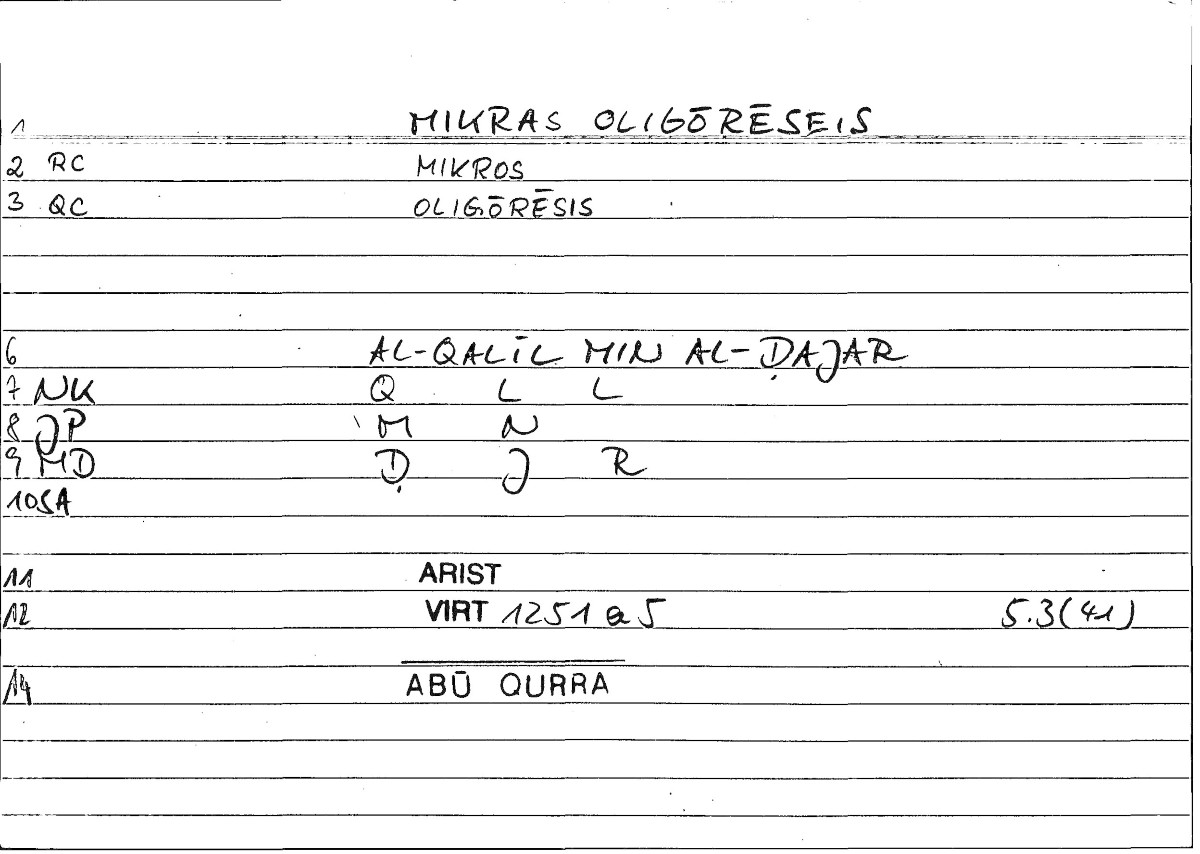 1 MIKRAS OLIGŌRĒSEIS
2 RC MIKROS
3 QC OLIGŌRĒSIS
6 AL-QALĪL MIN AL-ḌAJAR
7 NK Q L L
8 JP M N
9 MD Ḍ J R
10 SA
11 ARIST
12 VIRT 1251 a 5 5.3(41)
14 ABŪ QURRA